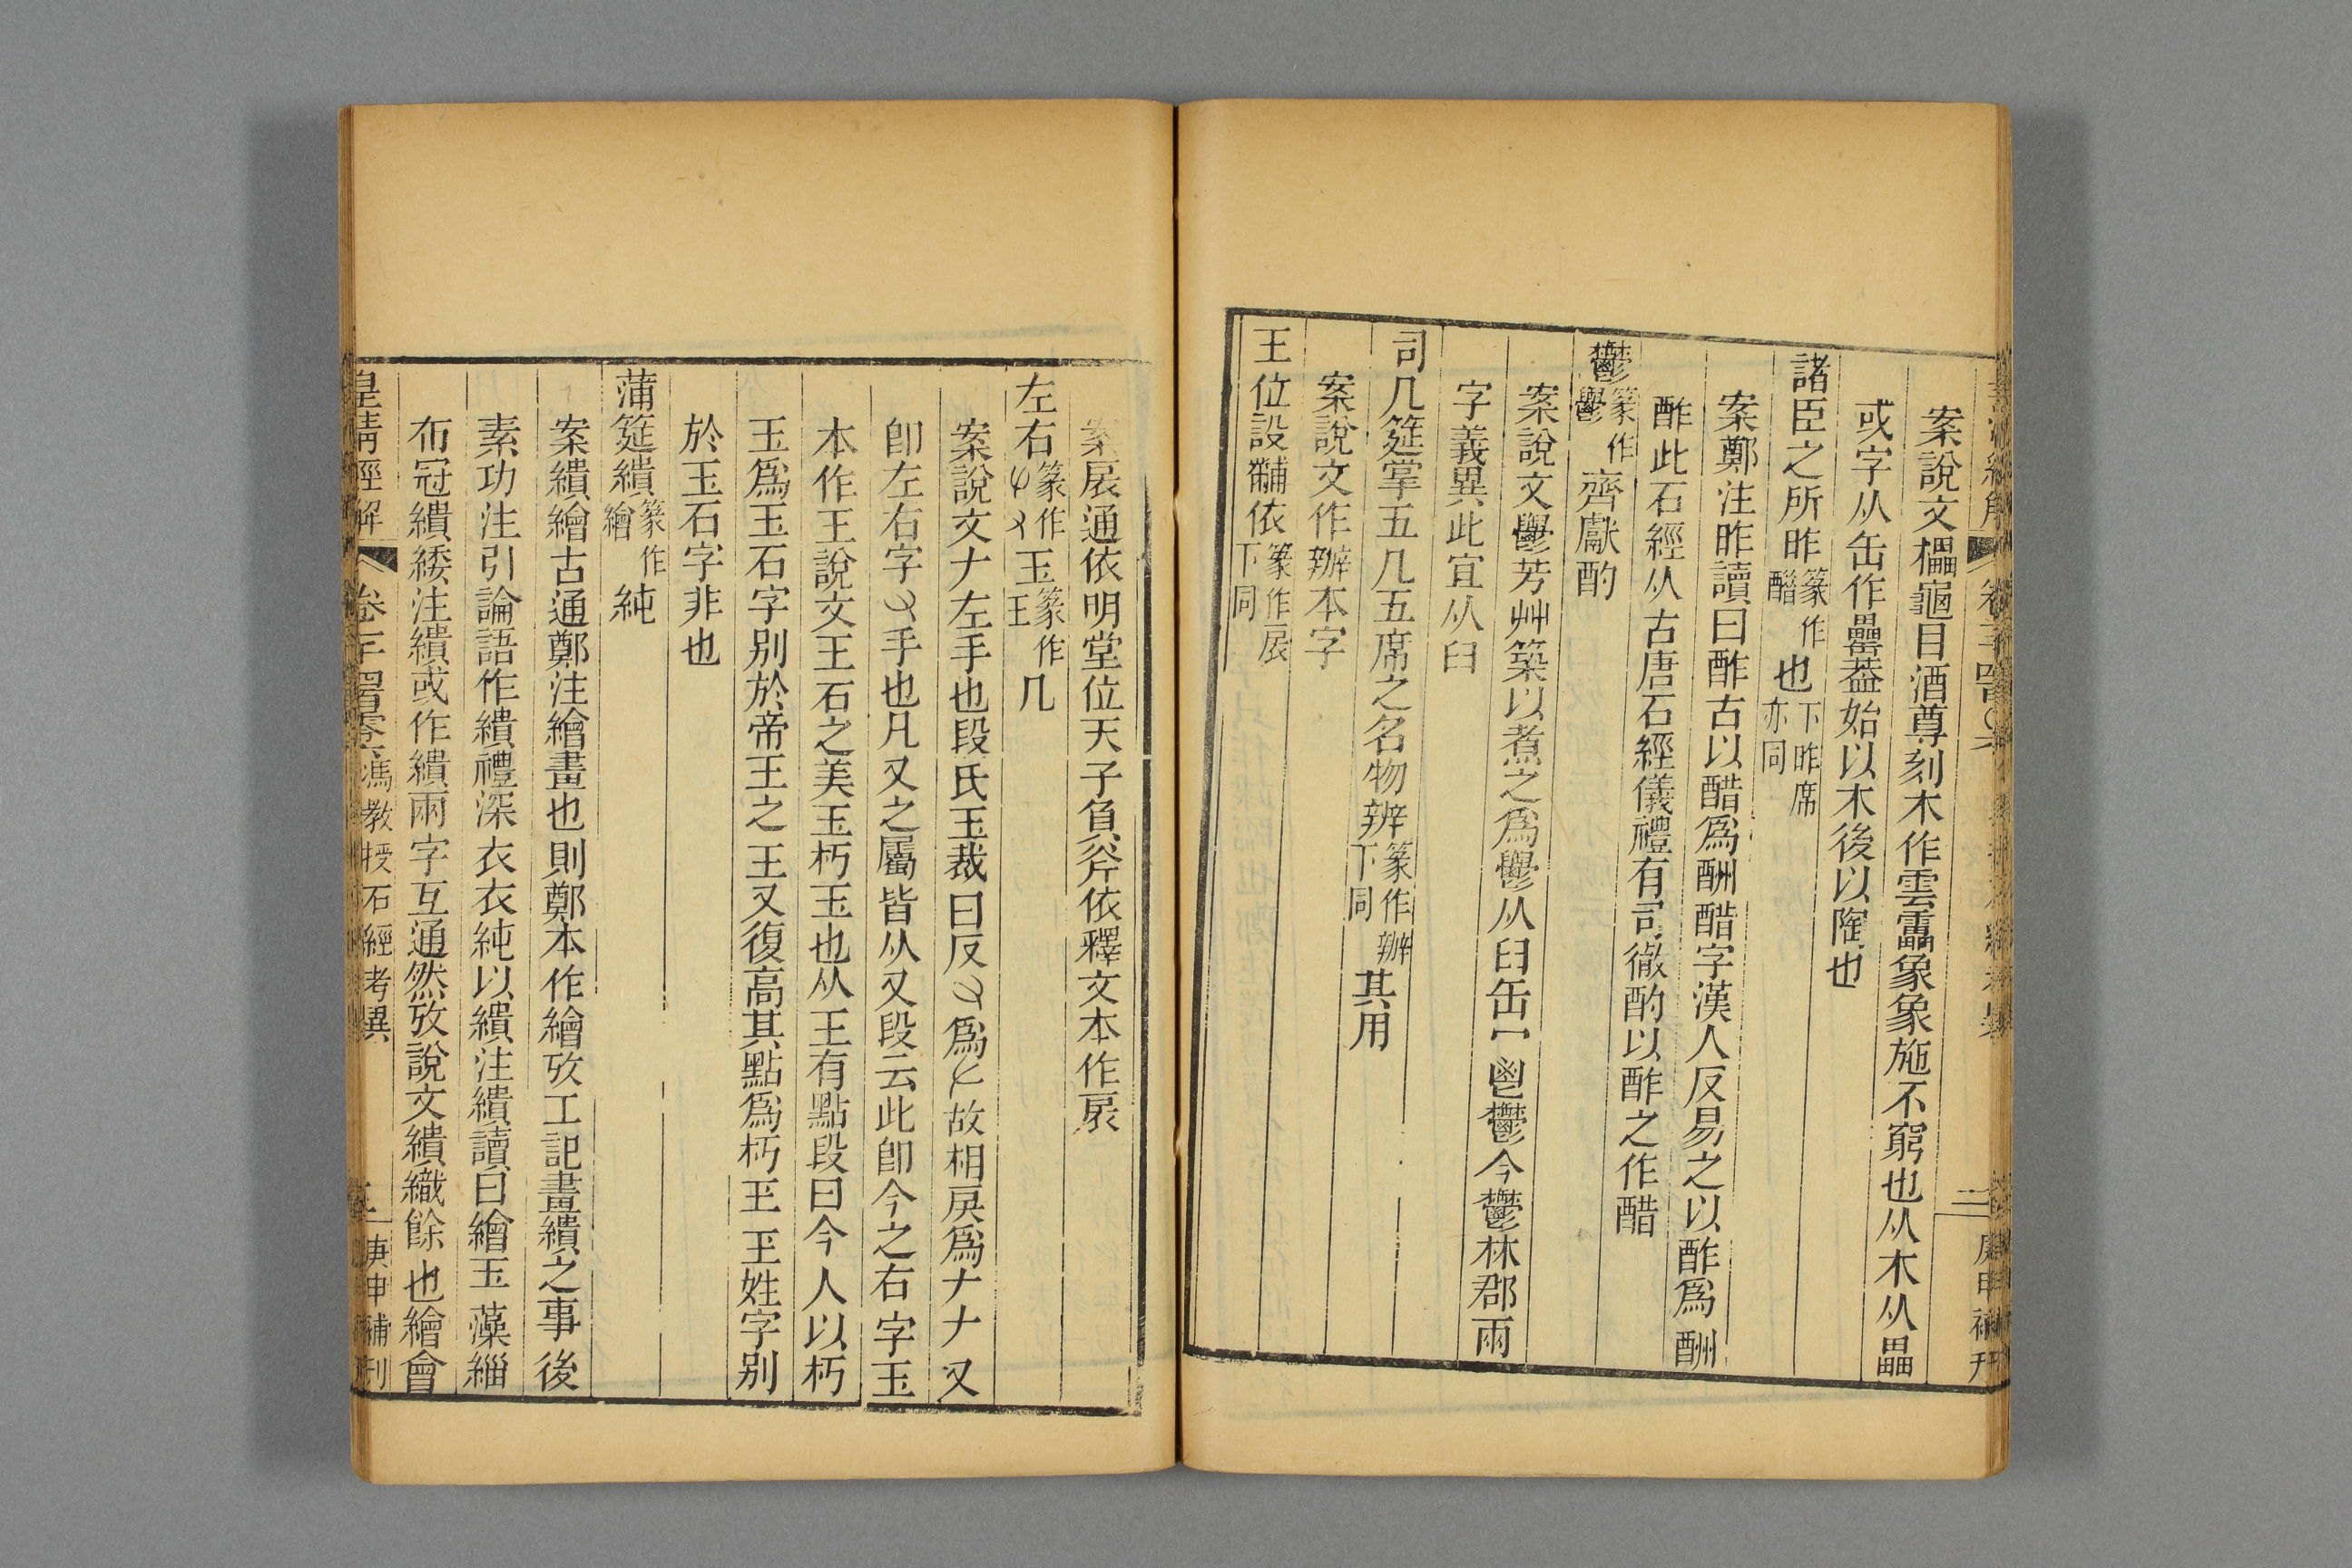 案說文櫑龜目酒尊刻木作雲靁象象施不窮也从木从畾
或字从缶作罍葢始以木後以陶也
諸臣之所昨篆作醋也下昨席亦同
案鄭注昨讀曰酢古以醋爲酬醋字漢人反易之以酢爲酬
酢此石經从古唐石經儀禮有司徹酌以酢之作醋
鬱篆作鬱齊獻酌
案說文鬱芳艸築以煮之爲鬱从臼缶冖鬯鬱今鬱林郡兩
字義異此宜从臼
司几筵掌五几五席之名物辨篆作辦下同其用
案說文作辦本字
王位設黼依篆作扆下同
案扆通依明堂位天子負斧依釋文本作扆
左右篆作玉篆作王几
案說文𠂇左手也段氏玉裁曰反又爲𠂇故相戾爲𠂇𠂇又
卽左右字又手也凡又之屬皆从又段云此卽今之右字玉
本作王說文王石之美玉朽玉也从王有點段曰今人以朽
玉爲玉石字别於帝王之王又復高其點爲朽玊玊姓字别
於玉石字非也
蒲筵繢篆作繪純
案繢繪古通鄭注繪畫也則鄭本作繪攷工記畫繢之事後
素功注引論語作繢禮深衣衣純以繢注繢讀曰繪玉藻緇
布冠繢緌注繢或作繢兩字互通然攷說文繢織餘也繪會
皇清經解 卷千四百零六 馮教授石經考異 庚申補刊